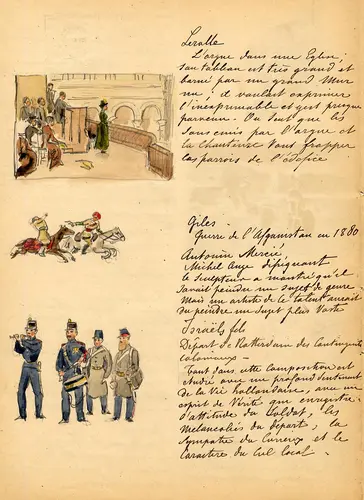 Lerolle
L'orgue dans une Eglise,
son tableau est très grand et
barré par un grand Mur
nu ; il voulait exprimer
l'inexprimable et y est presque
parvenu. On sent que les
sons émis par l'orgue et
la chanteuse vont frapper
les parois de l'édifice
Giles -
Guerre de l'Afganistan en 1880
Antonin Mercié
Michel Ange
le sculpteur a montré qu'il
savait peindre un sujet de genre
Mais un artiste de ce talent aurait
du peindre un sujet plus vaste
Israëls fils
Départ de Rotterdam des Contingents
coloniaux -
Tout dans cette composition est
étudié avec un profond sentiment
de la vie hollandaise, avec un
esprit de Vérité qui enregistre
l'attitude du Soldat, les
mélancolies du départ, la
sympathie du Curieux et le
Caractère du Ciel local -